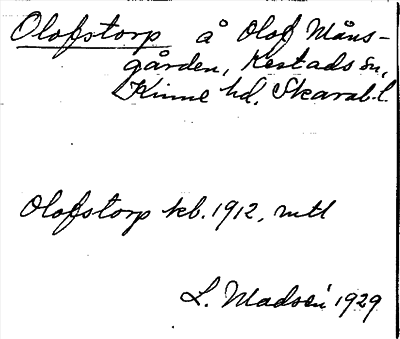 Olofstorp å Olof Måns-
gården, Kestads sn,
Kinne hd, Skarab.l.
Olofstorp kb. 1912, mtl
L. Madsén 1929